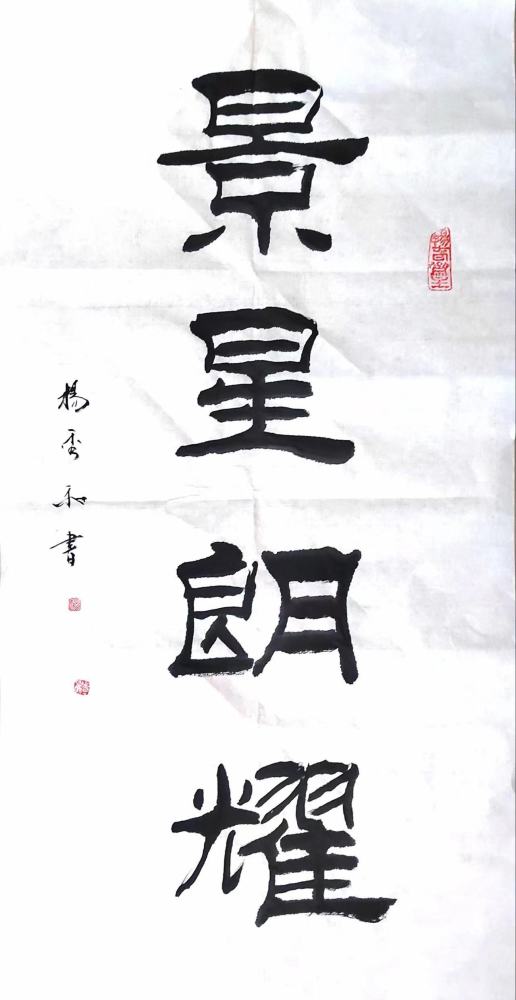 景星朗耀
楊秀和書